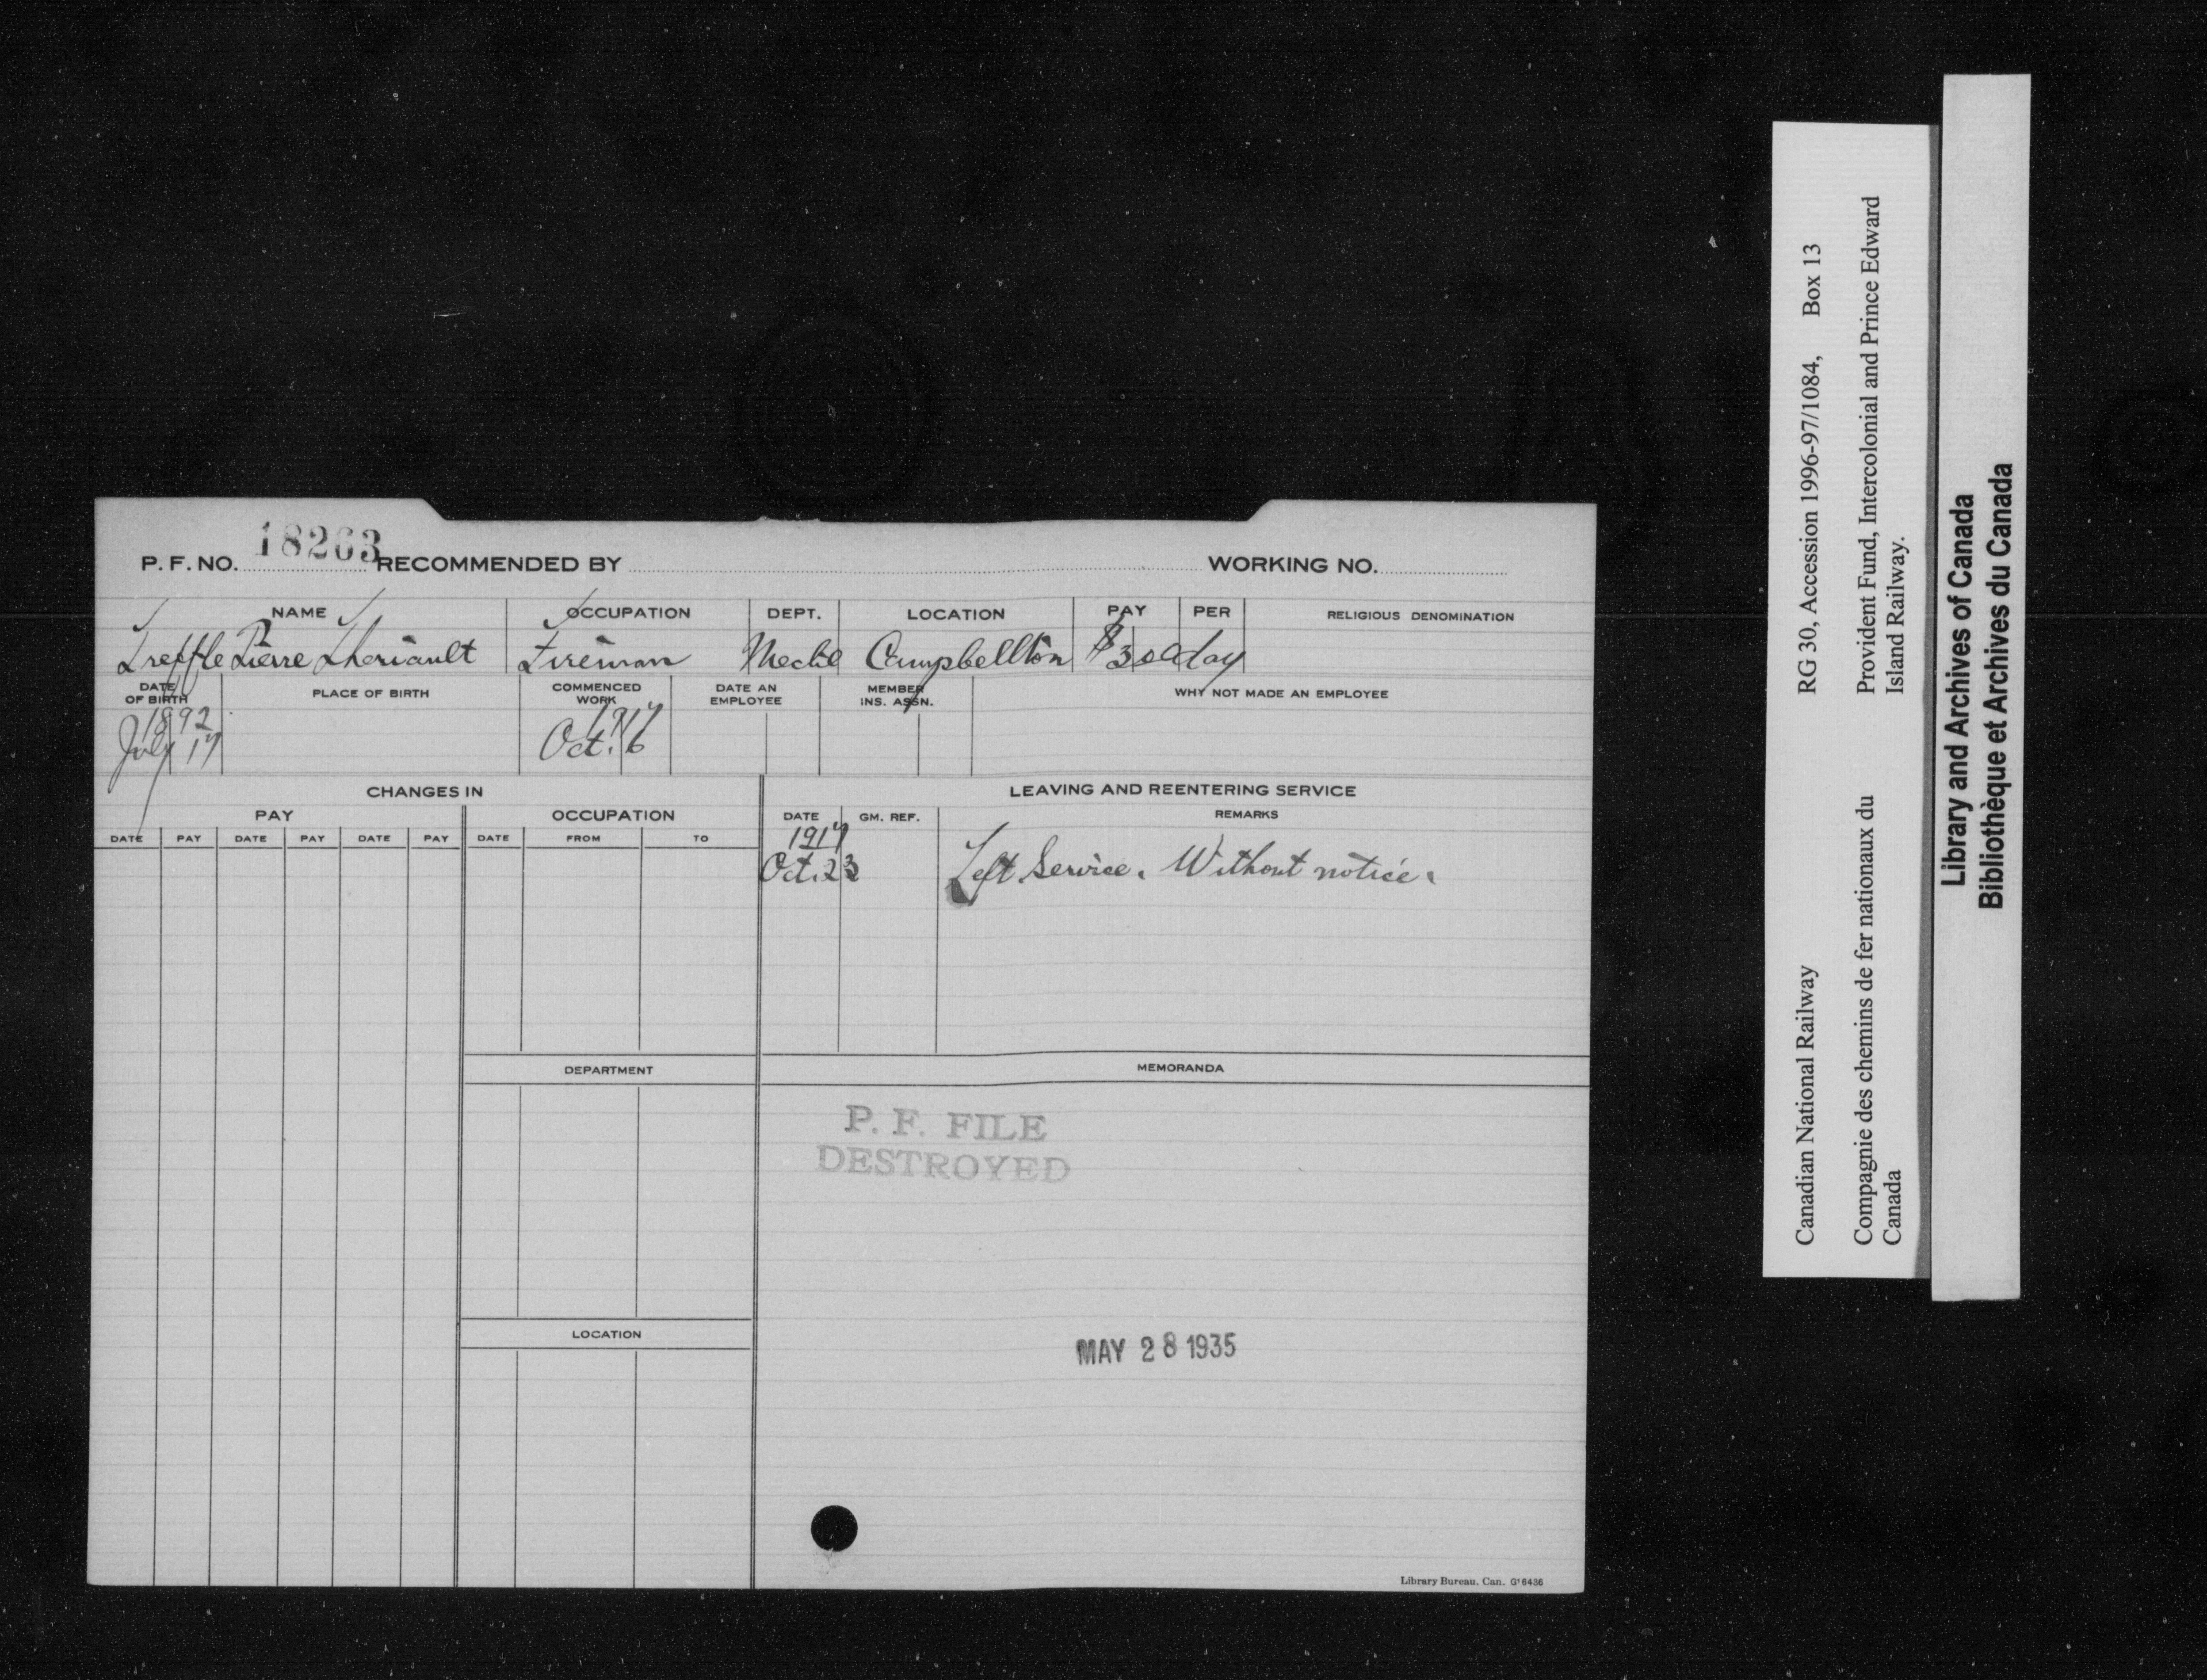 18263
P. F. NO. RECOMMENDED BY WORKING NO.
NAME OCCUPATION DEPT. LOCATION PAY PER RELIGIOUS DENOMINATION
Treffle Pierre Theriault Fireman Mechl Campbellton $3 00 day
DATE OF BIRTH PLACE OF BIRTH COMMENCED WORK DATE AN EMPLOYEE MEMBER INS. ASSN. WHY NOT MADE AN EMPLOYEE
1892 1917
July 17 Oct. 6
CHANGES IN LEAVING AND REENTERING SERVICE
PAY OCCUPATION DATE GM. REF. REMARKS
DATE PAY DATE PAY DATE PAY DATE FROM TO
1917
Oct. 23 Left Service. Without notice.
DEPARTMENT MEMORANDA
P. F. FILE
DESTROYED
LOCATION
MAY 28 1935
Library Bureau. Can. G16436
Canadian National Railway RG 30, Accession 1996-97/1084, Box 13
Compagnie des chemins de fer nationaux du Provident Fund, Intercolonial and Prince Edward
Canada Island Railway.
Library and Archives of Canada
Bibliothèque et Archives du Canada